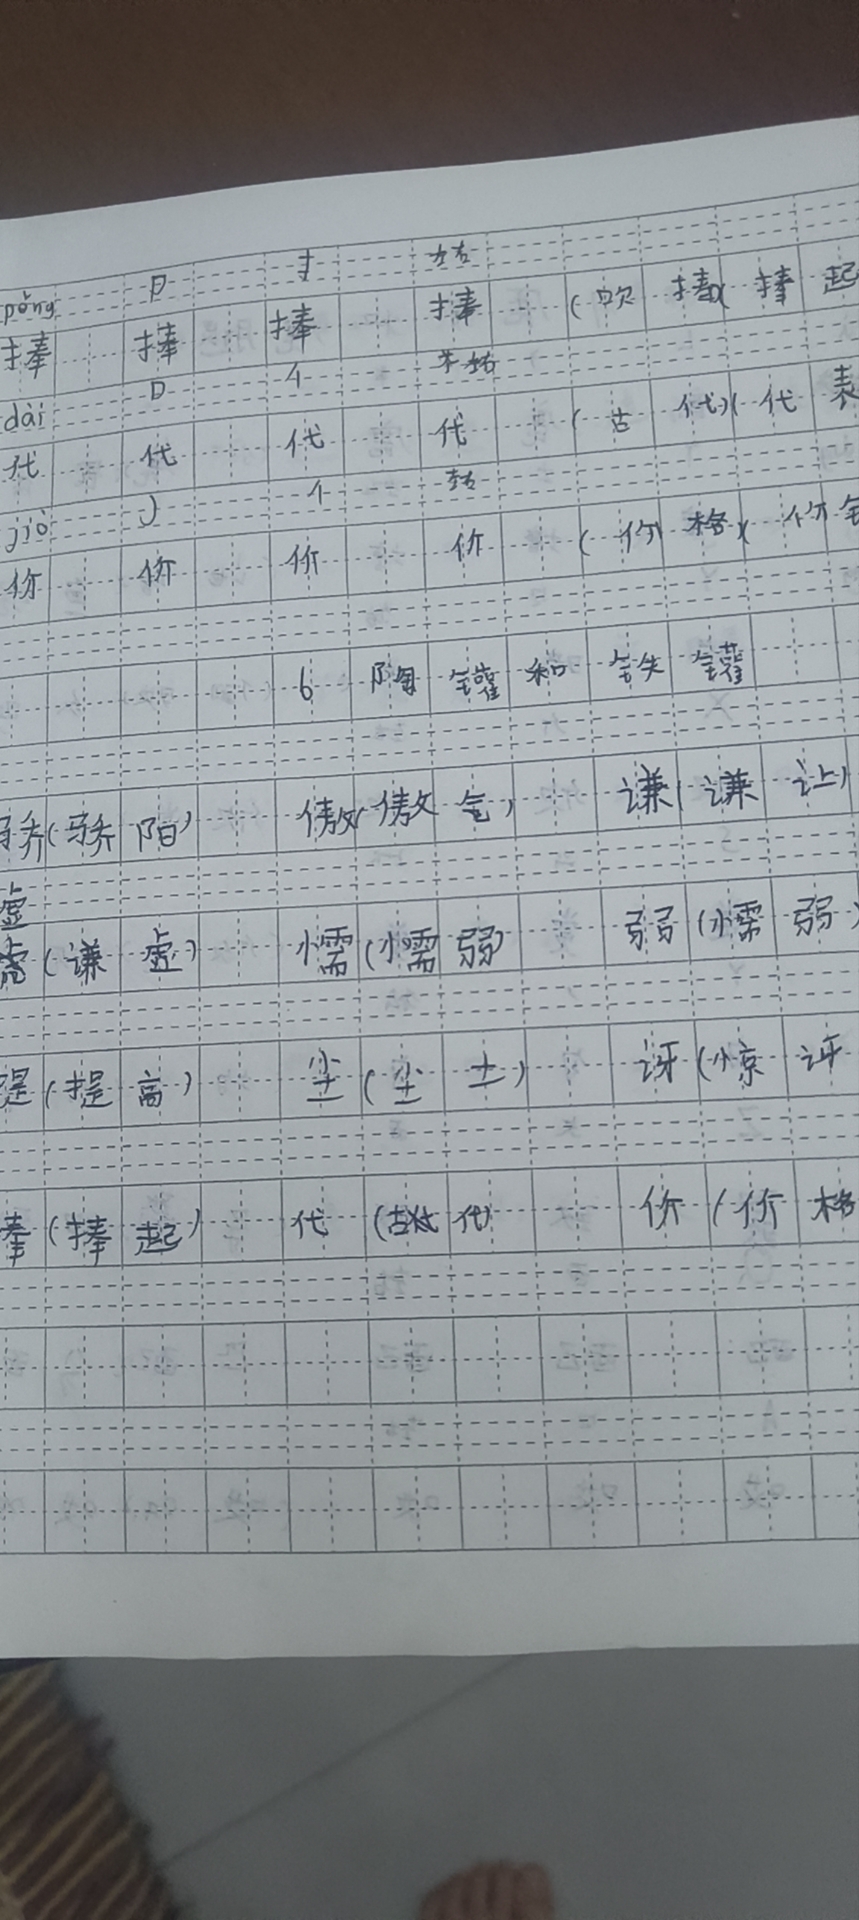 pěng P 扌 左右
捧 捧 捧 捧 (吹 捧)( 捧 起
dài D 亻 左右
代 代 代 代 (古 代)( 代 表
jià J 亻 左右
价 价 价 价 (价 格)( 价
6 陶 罐 和 铁 罐
骄(骄 阳) 傲(傲 气) 谦(谦 让)
虚
虚(谦 虚) 懦(懦 弱) 弱(懦 弱)
提(提 高) 尘(尘 土) 讶(惊 讶
捧(捧 起) 代(古 代) 价(价 格